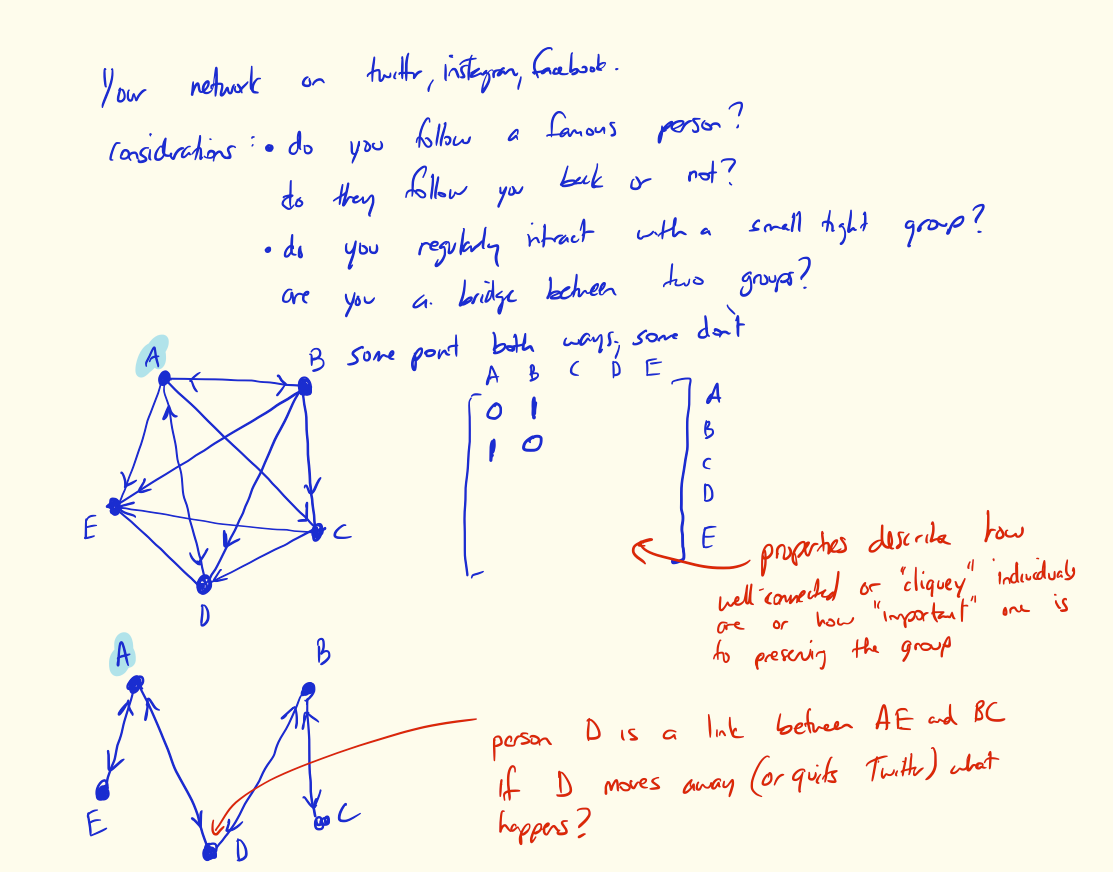 Your network on twitter, instagram, facebook.
Considerations: • do you follow a famous person?
do they follow you back or not?
• do you regularly interact with a small tight group?
are you a bridge between two groups?
some point both ways, some don't
A B
A B C D E
0 1 A
1 0 B
C
D
E
E C
D
properties describe how
well-connected or "cliquey" individuals
are or how "important" one is
to preserving the group
A B
person D is a link between AE and BC
If D moves away (or quits Twitter) what
happens?
E D C